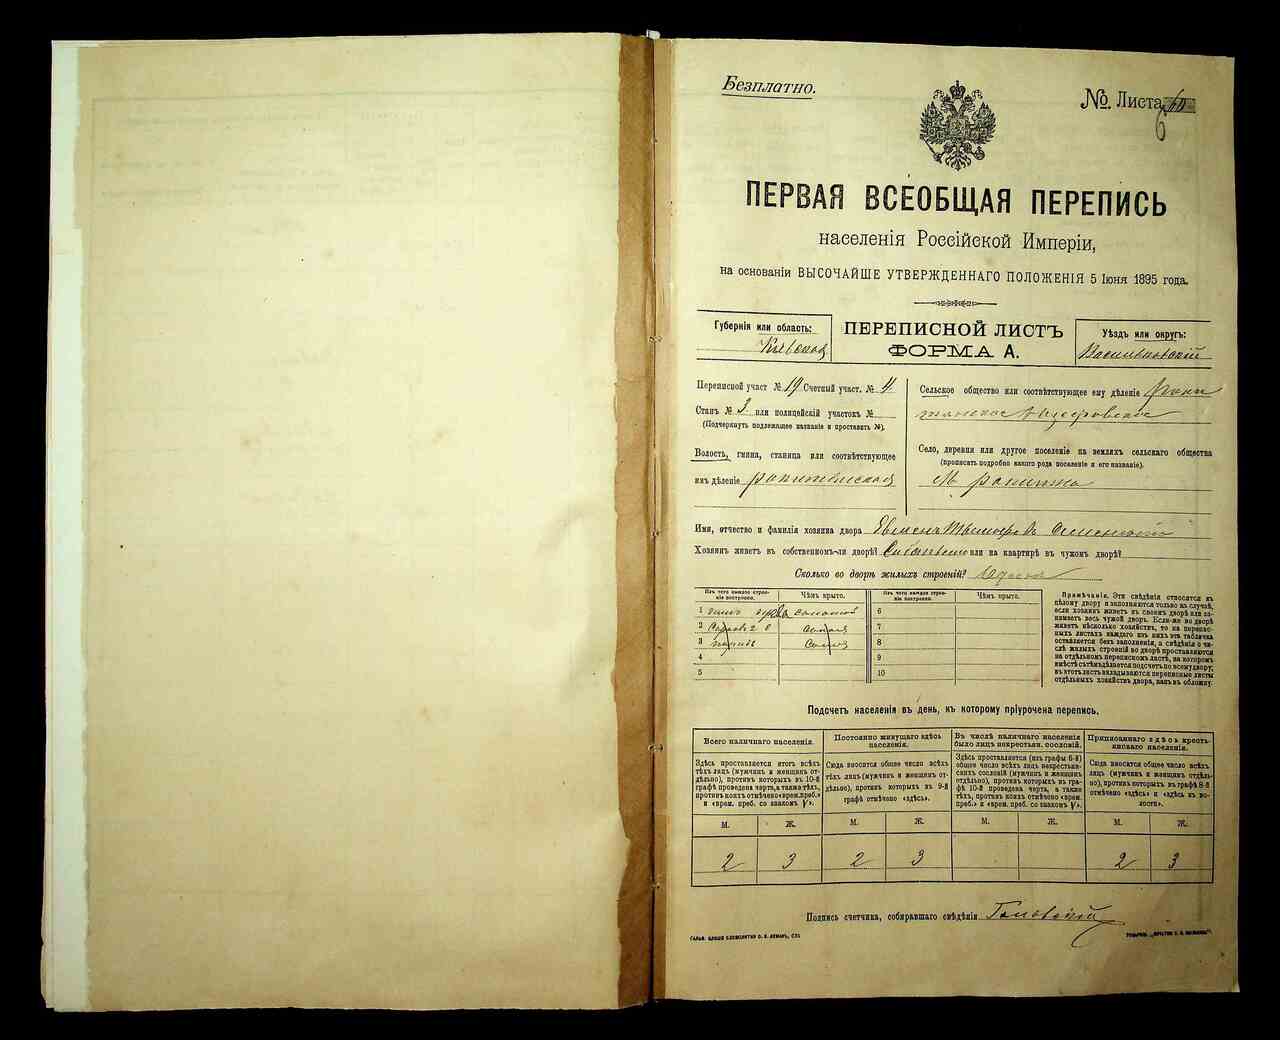 Безплатно.
№ Листа 60
6
ПЕРВАЯ ВСЕОБЩАЯ ПЕРЕПИСЬ
населенія Россійской Имперіи,
на основаніи ВЫСОЧАЙШЕ УТВЕРЖДЕННАГО ПОЛОЖЕНІЯ 5 Іюня 1895 года.
Губернія или область:
Кіевская
ПЕРЕПИСНОЙ ЛИСТЪ
ФОРМА А.
Уѣздъ или округъ:
Васильковскій
Переписной участ № 19 Счетный участ. № 4
Станъ № 3 или полицейскій участокъ №
(Подчеркнуть подлежащее названіе и проставить №).
Волость, гмина, станица или соотвѣтствующее
имъ дѣленіе
Сельское общество или соотвѣтствующее ему дѣленіе
Село, деревня или другое поселеніе на земляхъ сельскаго общества
(прописать подробно какого рода поселеніе и его названіе).
М
Имя, отчество и фамилія хозяина двора
Хозяинъ живетъ въ собственномъ-ли дворѣ? или на квартирѣ въ чужомъ дворѣ?
Сколько во дворѣ жилыхъ строеній?
Изъ чего каждое строеніе построено.
Чѣмъ крыто.
Изъ чего каждое строеніе построено.
Чѣмъ крыто.
1 соломой
2
3
4
5
6
7
8
9
10
Примѣчанія. Эти свѣдѣнія относятся къ
цѣлому двору и заполняются только въ случаѣ,
если хозяинъ живетъ въ своемъ дворѣ или занимаетъ
весь чужой дворъ. Если-же во дворѣ
живетъ нѣсколько хозяйствъ, то на переписныхъ
листахъ каждаго изъ нихъ эта табличка
оставляется безъ заполненія, а свѣдѣнія о числѣ
жилыхъ строеній во дворѣ проставляются
на отдѣльномъ переписномъ листѣ, на которомъ
вмѣстѣ съ тѣмъ дѣлается подсчетъ по всему двору;
въ этотъ листъ вкладываются переписные листы
отдѣльныхъ хозяйствъ двора, какъ въ обложку.
Подсчетъ населенія въ день, къ которому пріурочена перепись.
Всего наличнаго населенія.
Постоянно живущаго здѣсь населенія.
Въ числѣ наличнаго населенія было лицъ некрестьян. сословій.
Приписаннаго здѣсь крестьянскаго населенія.
Здѣсь проставляется итогъ всѣхъ
тѣхъ лицъ (мужчинъ и женщинъ отдѣльно),
противъ которыхъ въ 10-й
графѣ проведена черта, а также тѣхъ,
противъ коихъ отмѣчено «врем. преб.»
и «врем. преб. со знакомъ V».
Сюда вносится общее число всѣхъ
тѣхъ лицъ (мужчинъ и женщинъ отдѣльно),
противъ которыхъ въ 9-й
графѣ отмѣчено «здѣсь».
Здѣсь проставляется (изъ графы 6-й)
общее число всѣхъ лицъ некрестьянскихъ
сословій (мужчинъ и женщинъ
отдѣльно), противъ которыхъ въ графѣ
10-й проведена черта, а также
тѣхъ, противъ коихъ отмѣчено «врем.
преб.» и «врем. преб. со знакомъ V».
Сюда вносится общее число всѣхъ
лицъ (мужчинъ и женщинъ отдѣльно),
противъ которыхъ въ графѣ 8-й
отмѣчено «здѣсь» и «здѣсь въ волости».
М. Ж. М. Ж. М. Ж. М. Ж.
2 3 2 3 2 3
Подпись счетчика, собиравшаго свѣдѣнія